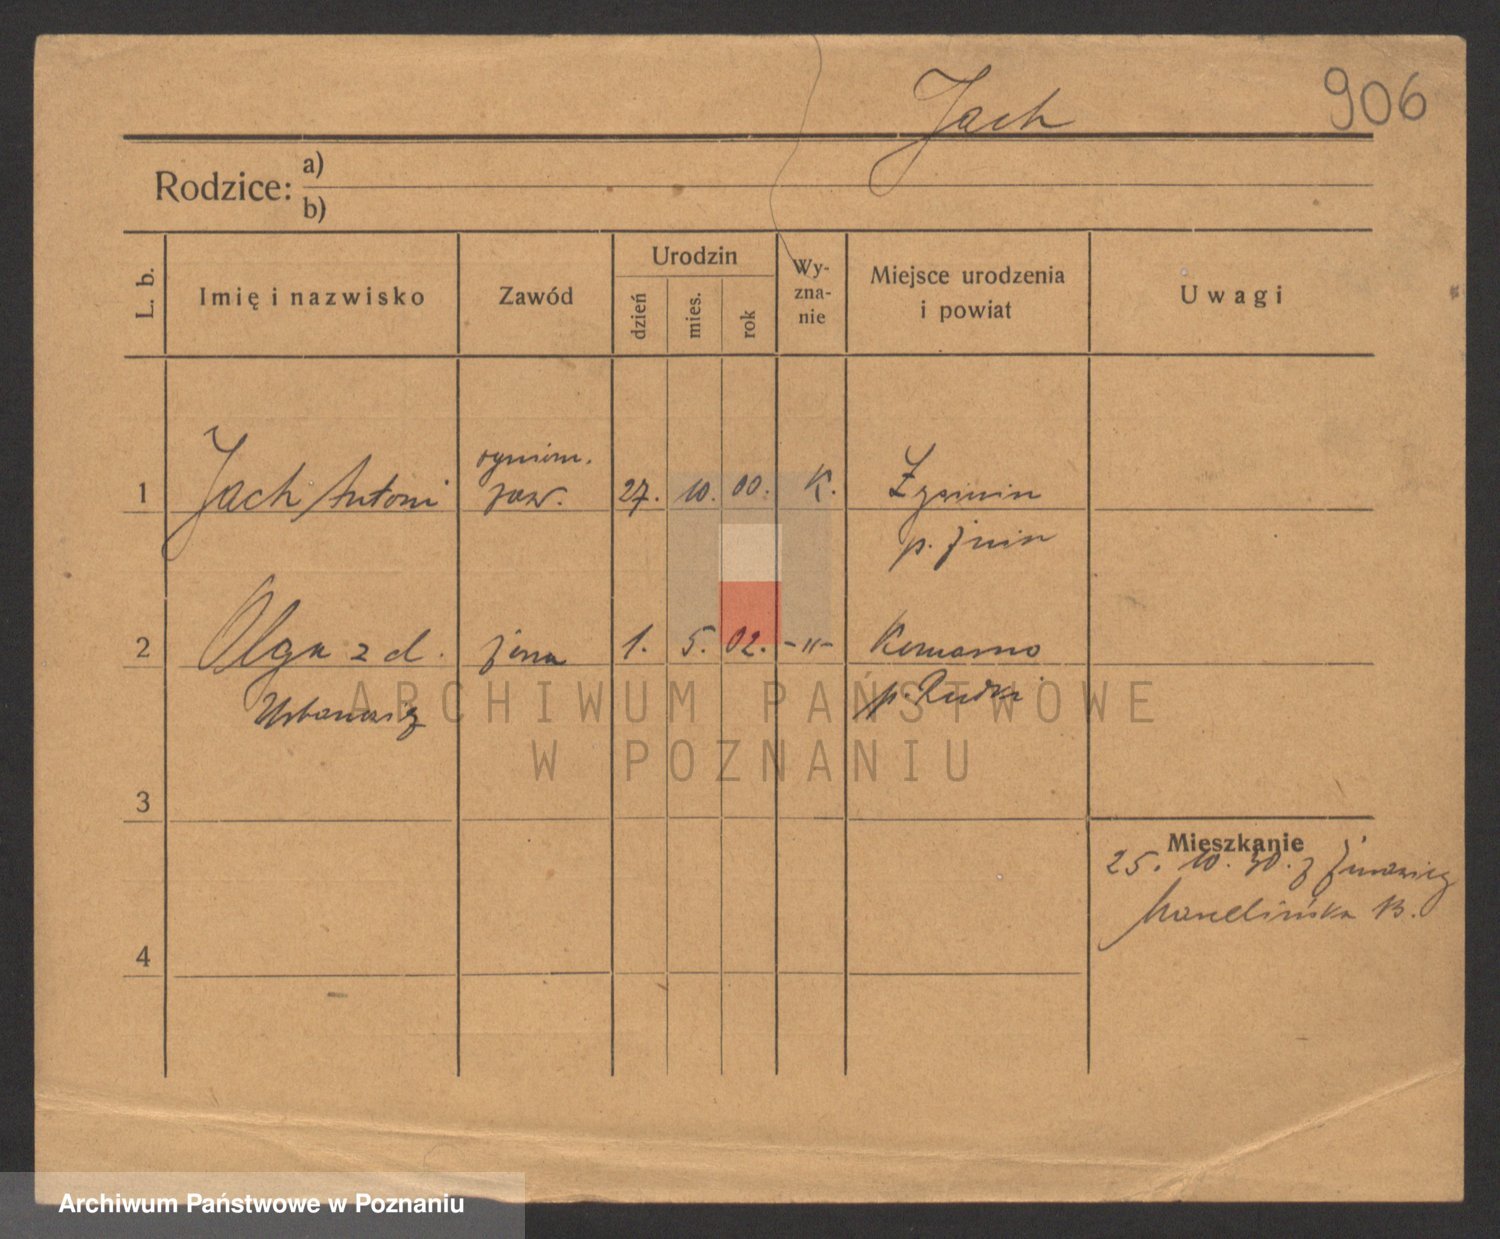 Jach
906
Rodzice:
a)
b)
L. b.
Imię i nazwisko
Zawód
Urodzin
dzień
mies.
rok
Wy-
zna-
nie
Miejsce urodzenia
i powiat
Uwagi
1
Jach Antoni
zaw.
27. 10. 00.
K.
p. Żnin
2
Olga z d.
żona
1. 5. 02.
-"-
Komarno
p. Rudki
ARCHIWUM PAŃSTWOWE
W POZNANIU
3
Mieszkanie
25. 10. 30. z
4
Archiwum Państwowe w Poznaniu